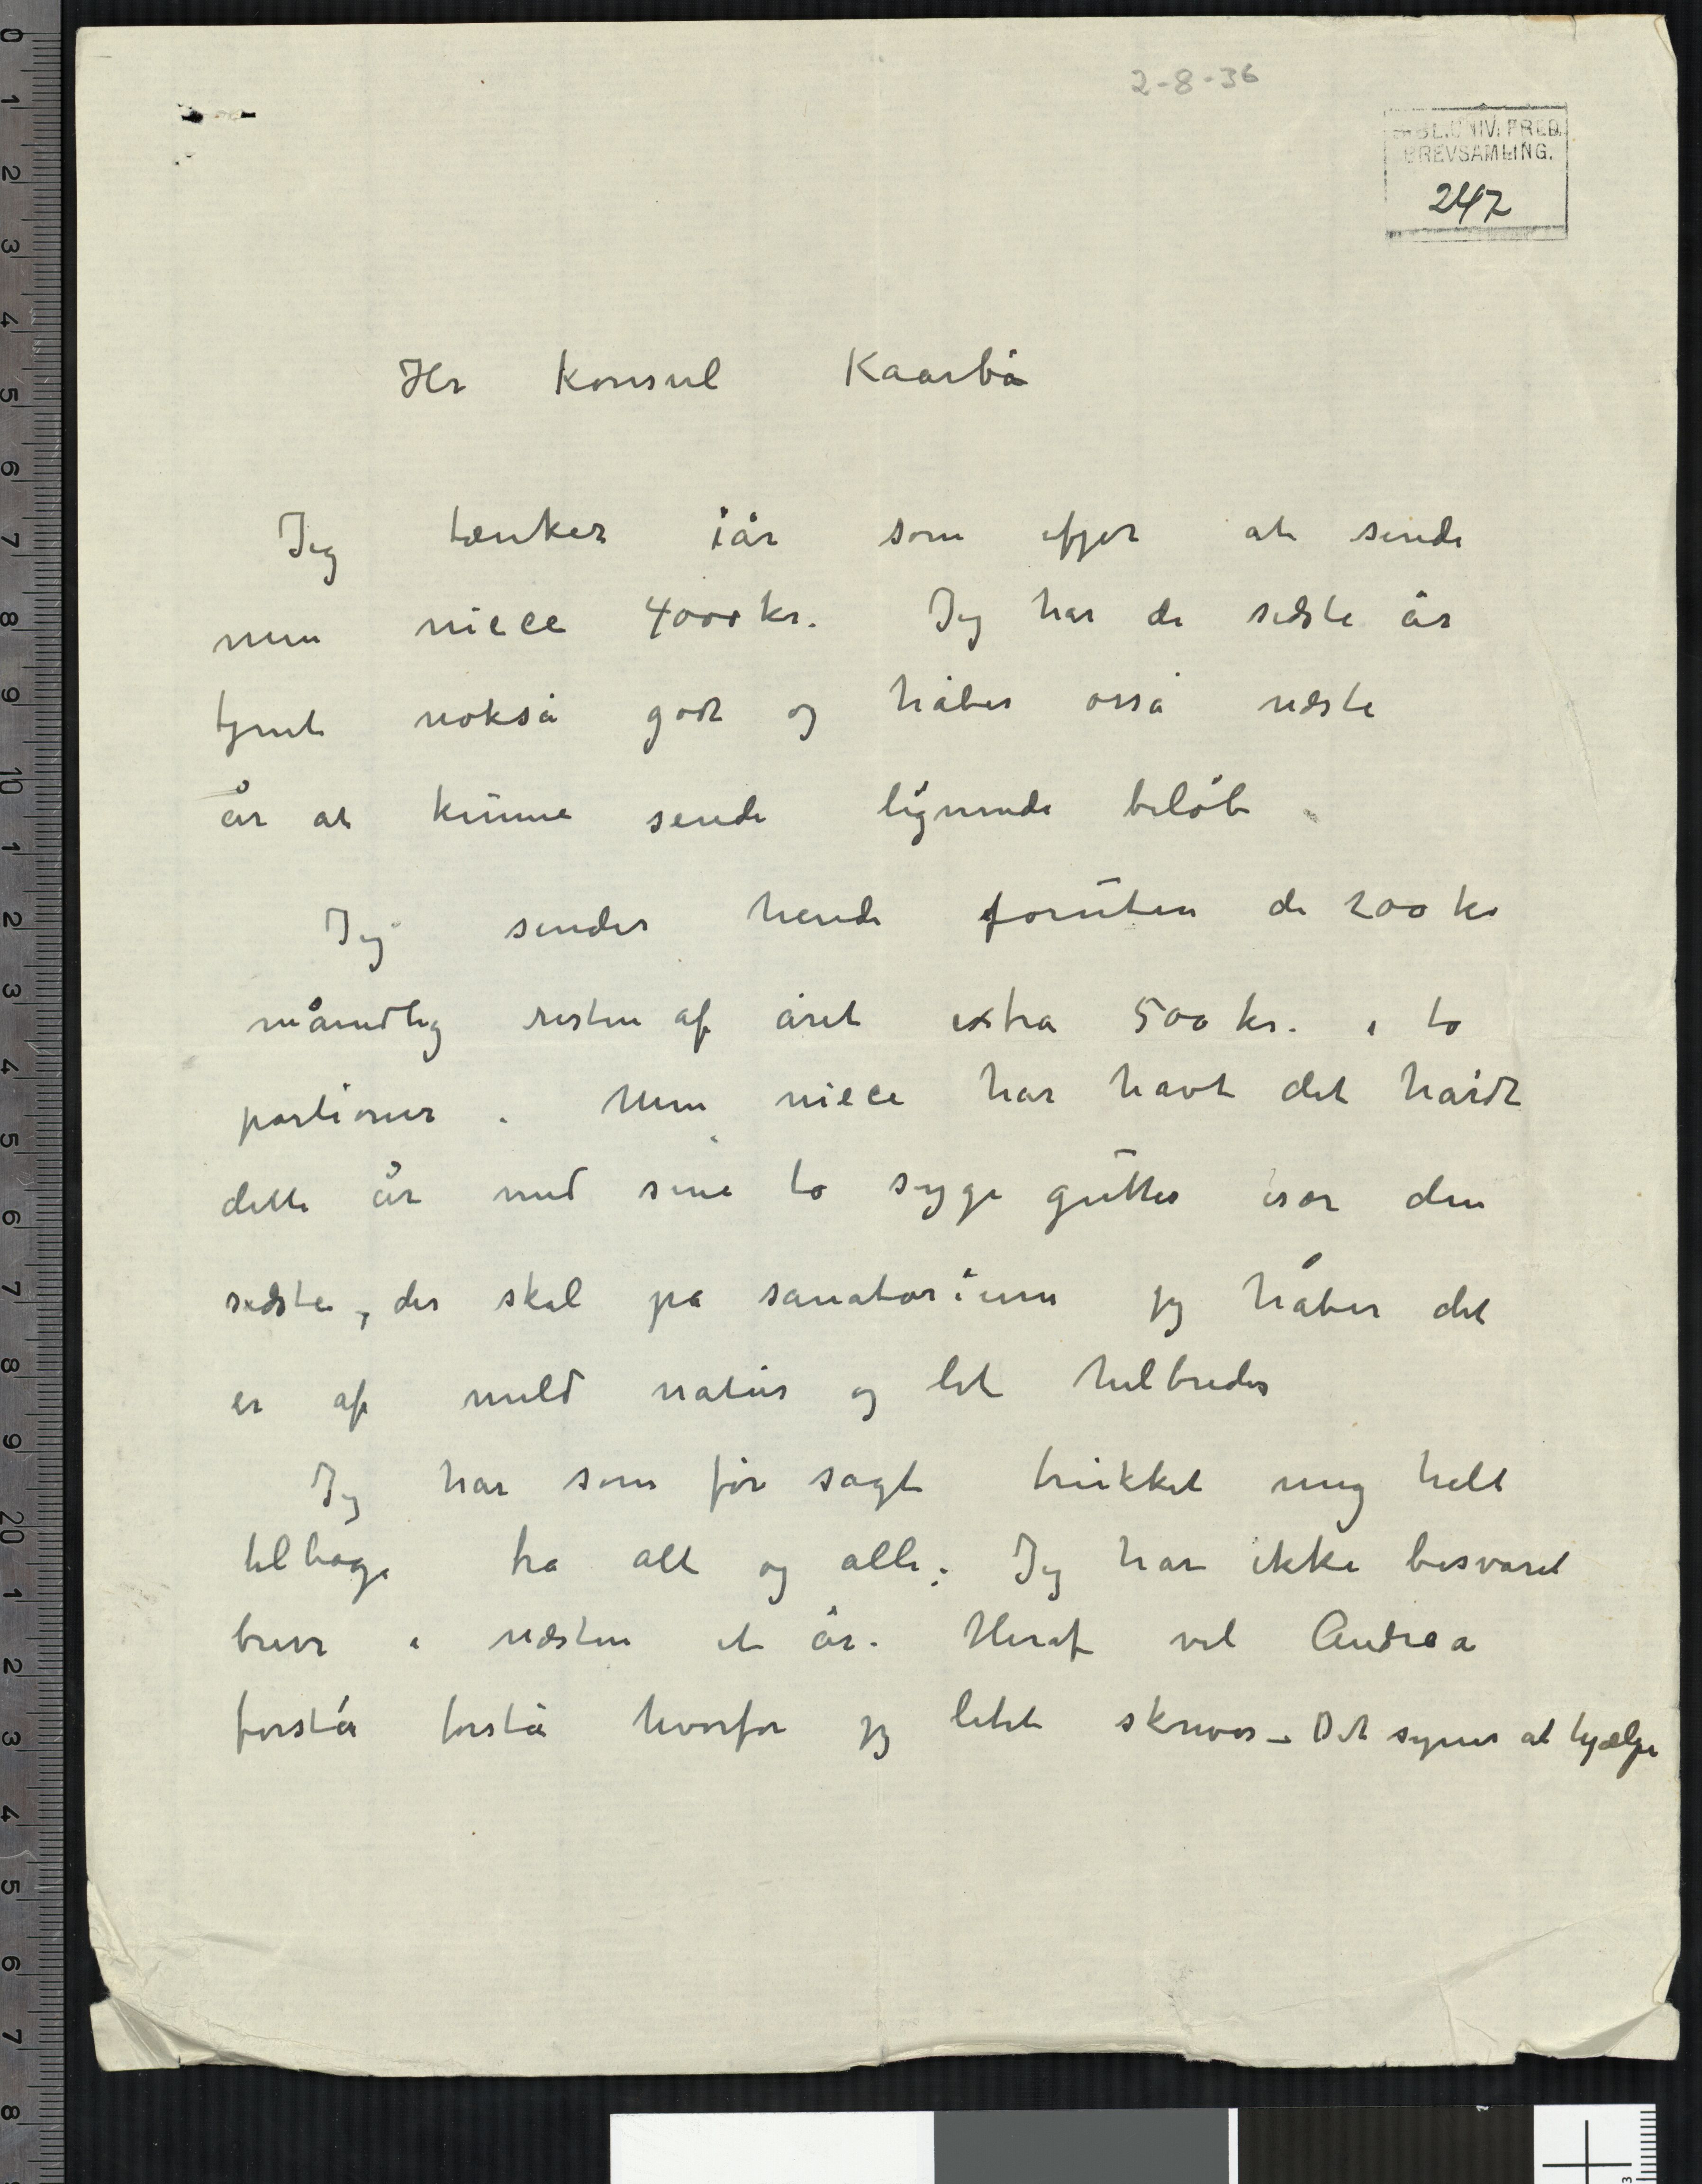 2-8-36
BIBL. UNIV. FRED.
BREVSAMLING.
247
Hr Konsul Kaarbø
Jeg tænker iår som ifjor at sende
min niece 4000 kr. Jeg har de sidste år
tjent nokså godt og håber også næste
år at kunne sende lignende beløb.
Jeg sender hende foruten de 200 kr
månedlig resten af året extra 500 kr. i to
portioner. Min niece har havt det hårdt
dette år med sine to syge gutter især den
sidste, der skal på sanatorium jeg håber det
er af mild natur og let helbredes
Jeg har som før sagt trukket mig helt
tilbage fra alt og alle. Jeg har ikke besvaret
breve i næsten et år. Heraf vil Andrea
forstår forstå hvorfor jeg lidet skriver – Det synes at hjælpe